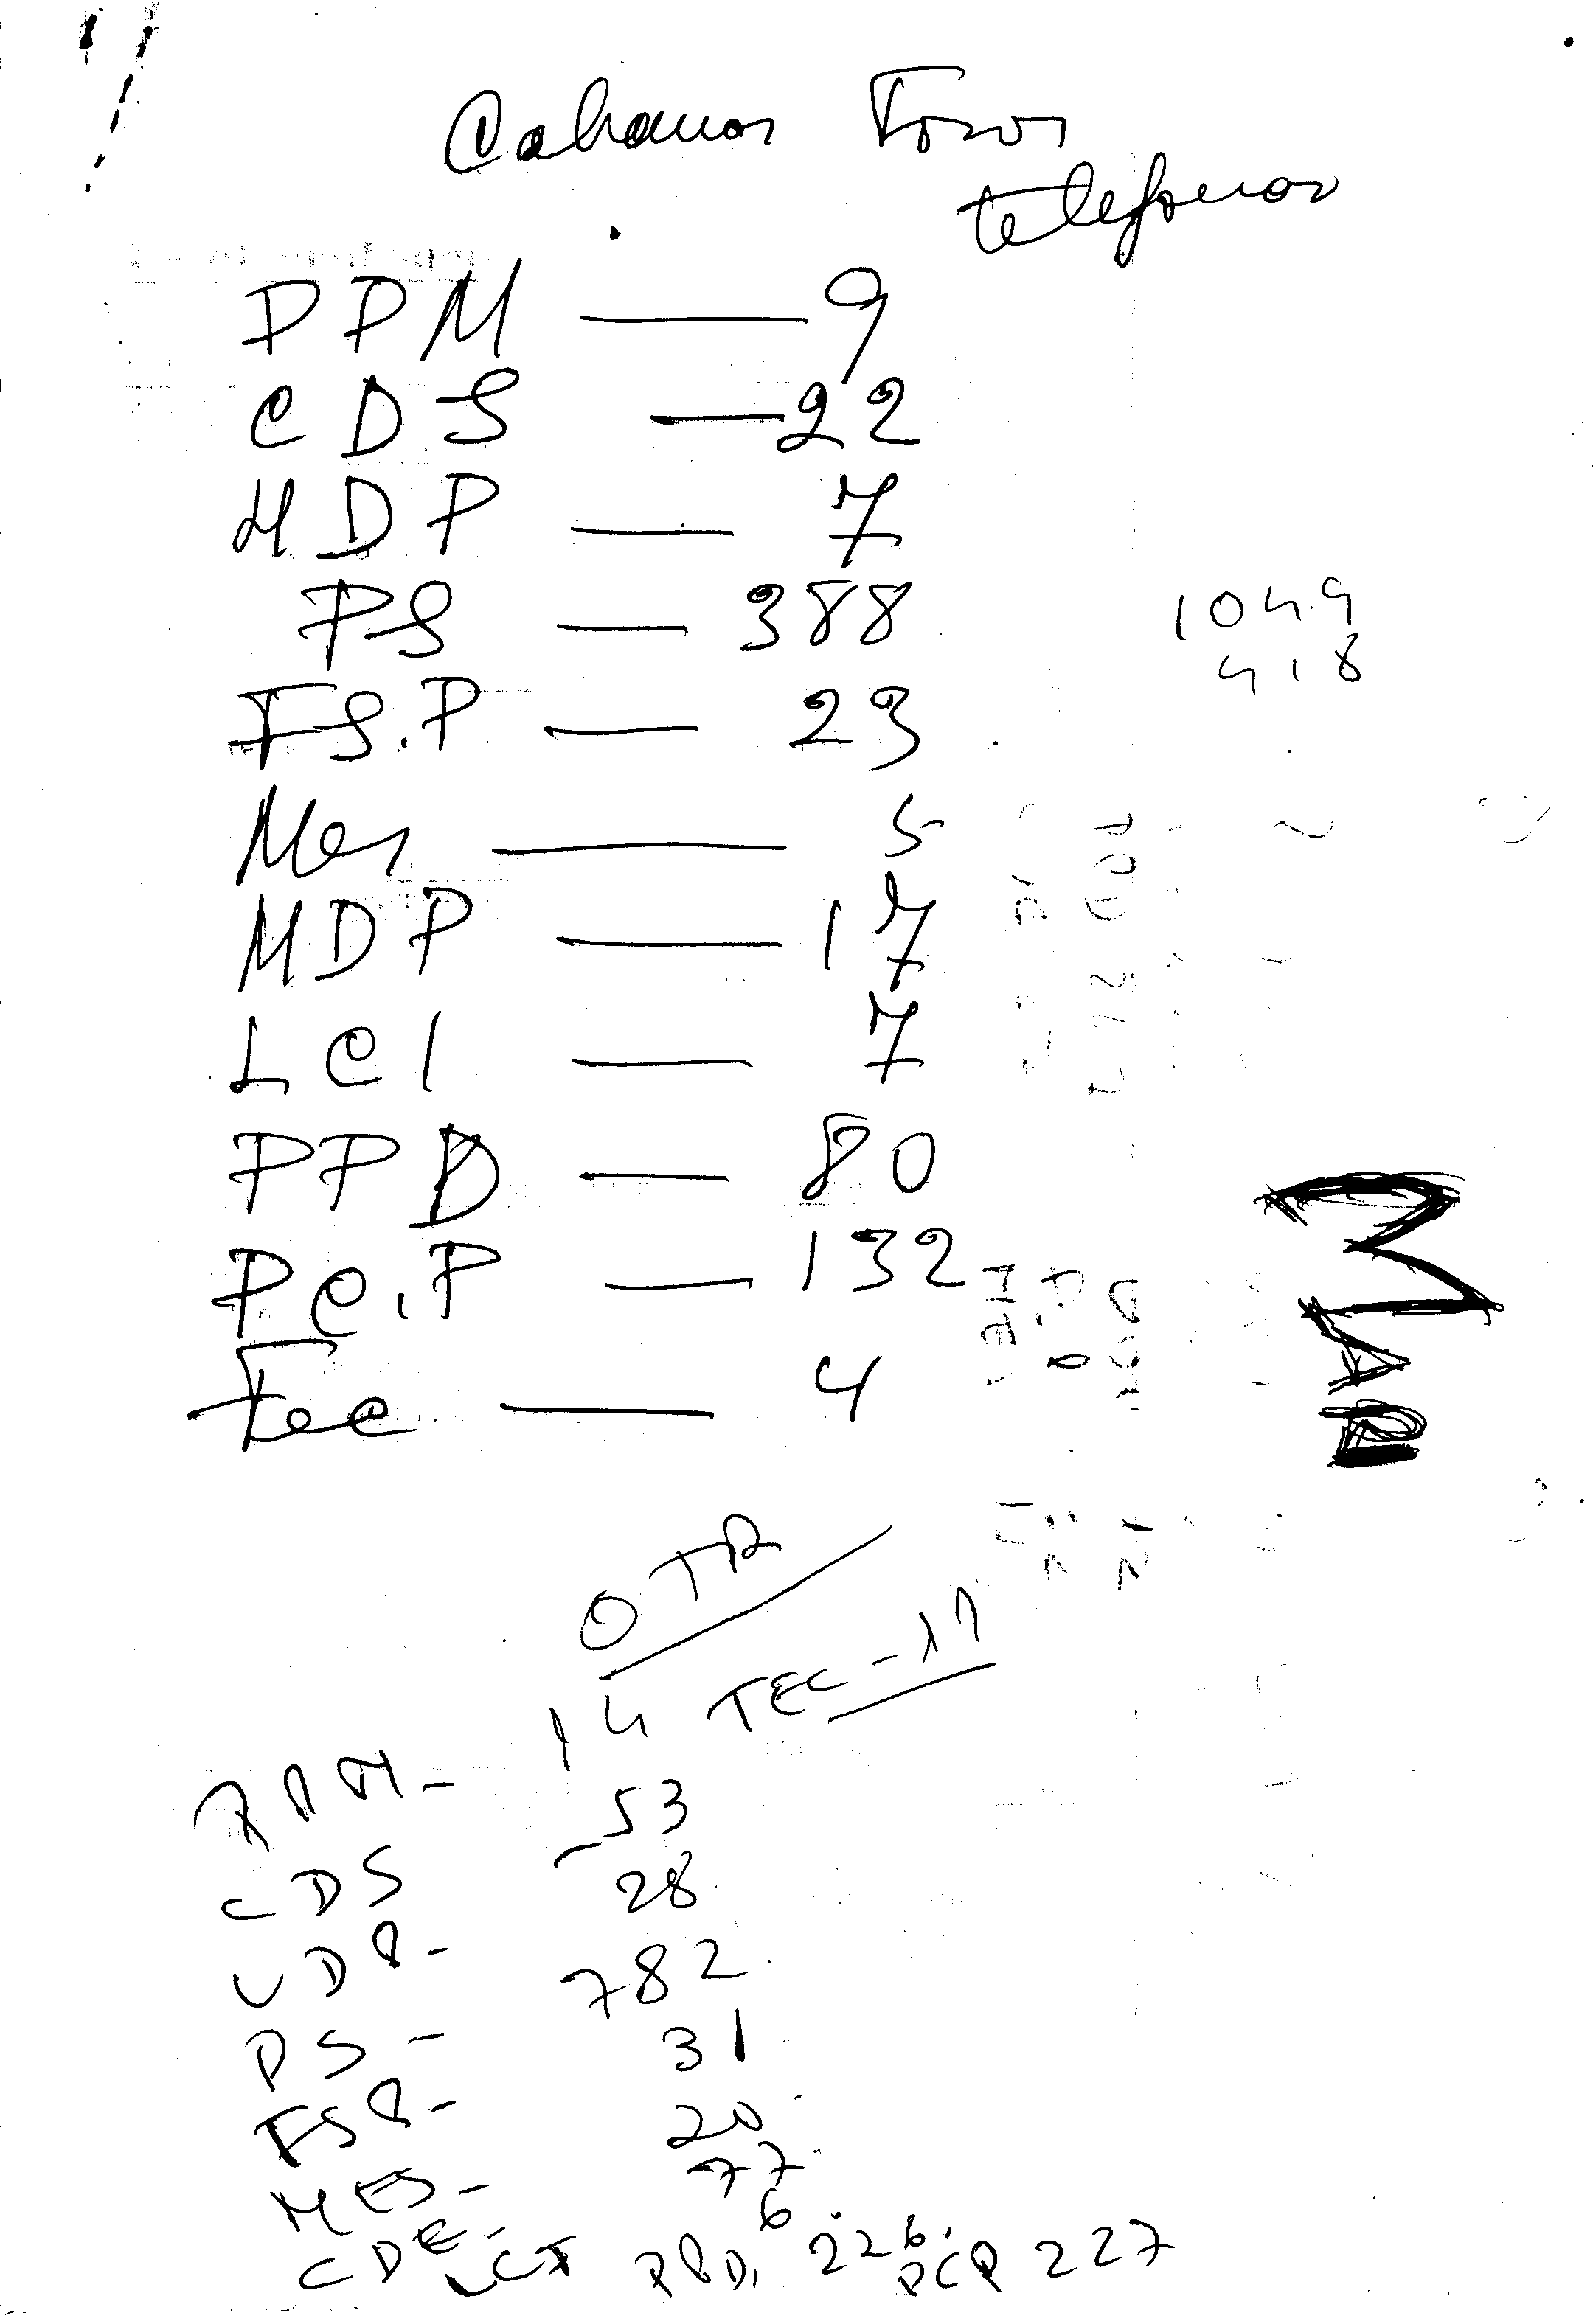 Cabanas Toros
telefonos
PPM — 9
CDS — 22
UDP — 7
PS — 388
FS.P — 23
Mes — 5
MDP — 17
LCI — 7
PPD — 80
PC.P — 132
Tec — 4
1049
418
OTR
14 TEC - 11
PPM -
53
CDS
28
UDP -
782
PS -
31
FSP -
20
MES -
77
CDE -
6
LCI PPD, 226, PCP 227